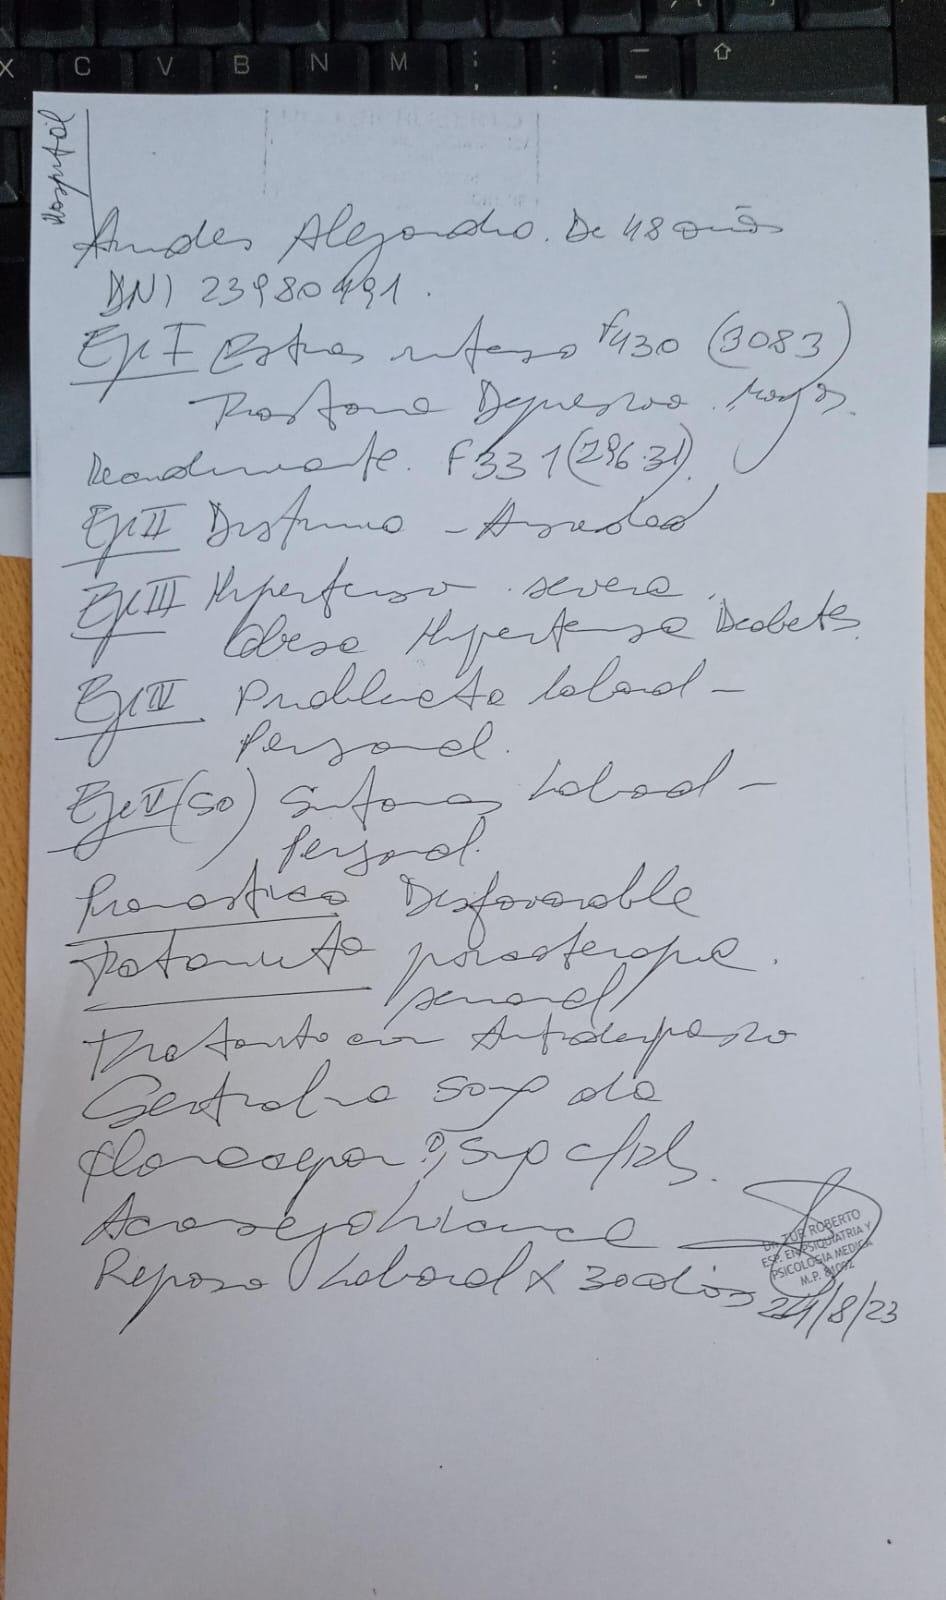 Hospital
Alejandro. De 48 años
DNI 23980491.
Eje I Estres intenso F430 (3083)
Trastorno Depresivo Mayor.
Recondimiente. F331 (296.31)
Eje II Distimia - Ansiedad
Eje III Hipertenso severo.
Obeso Hipertenso Diabetes.
Eje IV Problemeta laboral -
Personal.
Eje V (50) Sintomas Laboral -
Personal.
Pronostico Desfavorable
Tratamiento psicoterapia.
semanal
Tratamiento con Antidepresivo
Sertralina 50mg dia
Clonazepam 0,5mg c/12h.
Aconsejo
Reposo Laboral x 30 dias
DR. TUR ROBERTO
ESP. EN PSIQUIATRIA Y
PSICOLOGIA MEDICA
M.P.
24/8/23
X C V B N M ; :